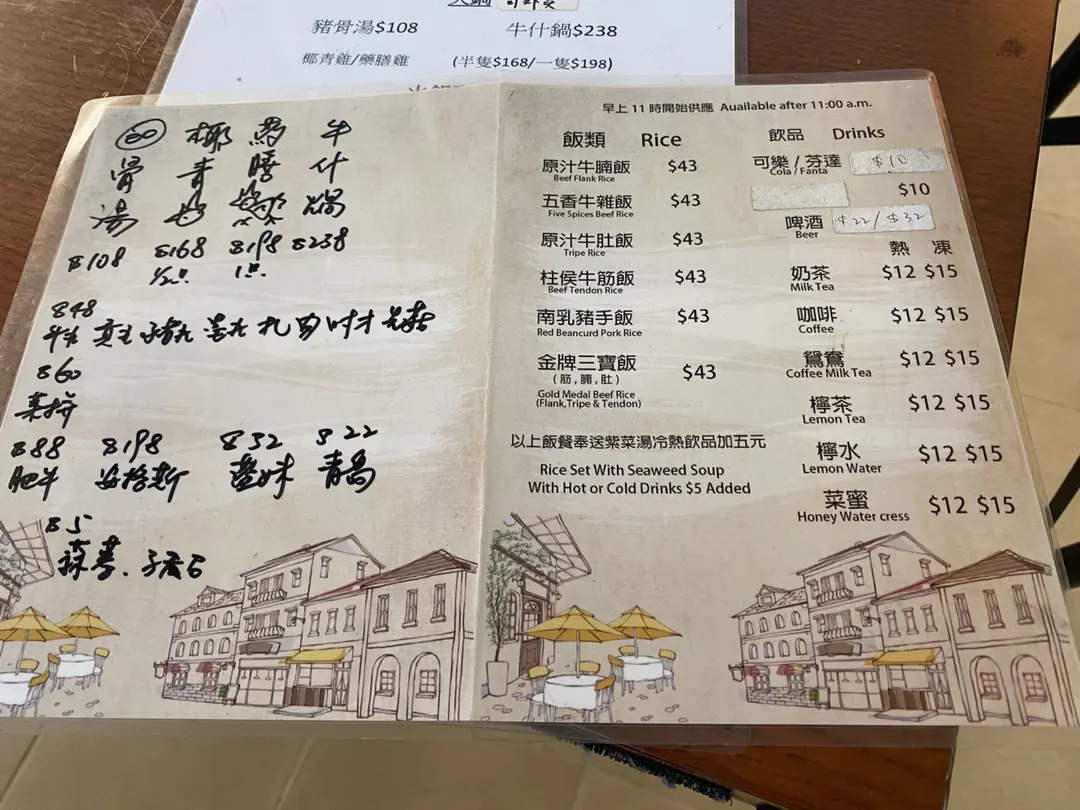 火鍋
豬骨湯$108 牛什鍋$238
椰青雞/藥膳雞 (半隻$168/一隻$198)
骨湯
$108
椰青
$168
1/2
膳
$198
1
牛什鍋
$238
$48
$60
菜拼
$88 肥牛
$198 安格斯
$32
$22 青島
$5
早上 11 時開始供應 Auailable after 11:00 a.m.
飯類 Rice
原汁牛腩飯 $43
Beef Flank Rice
五香牛雜飯 $43
Five Spices Beef Rice
原汁牛肚飯 $43
Tripe Rice
柱侯牛筋飯 $43
Beef Tendon Rice
南乳豬手飯 $43
Red Beancurd Pork Rice
金牌三寶飯 $43
(筋,腩,肚)
Gold Medal Beef Rice
(Flank,Tripe & Tendon)
以上飯餐奉送紫菜湯冷熱飲品加五元
Rice Set With Seaweed Soup
With Hot or Cold Drinks $5 Added
飲品 Drinks
可樂 / 芬達 $10
Cola / Fanta
$10
啤酒 $22/$32
Beer
熱 凍
奶茶 $12 $15
Milk Tea
咖啡 $12 $15
Coffee
鴛鴦 $12 $15
Coffee Milk Tea
檸茶 $12 $15
Lemon Tea
檸水 $12 $15
Lemon Water
菜蜜 $12 $15
Honey Water cress